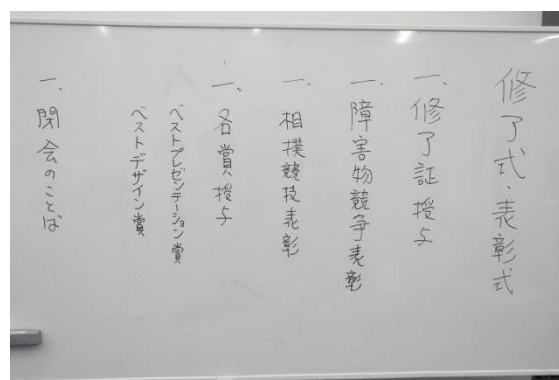 修了式・表彰式
一、修了証授与
一、障害物競争表彰
一、相撲競技表彰
一、各賞授与
ベストプレゼンテーション賞
ベストデザイン賞
一、閉会のことば